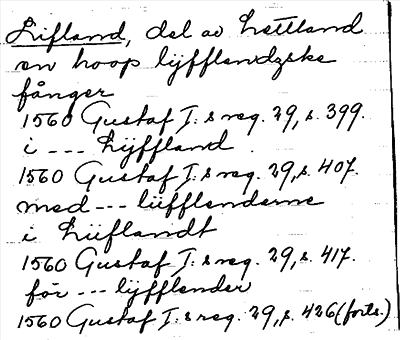 Lifland, del av Lettland
en hoop lijfflendzske
fånger
1560 Gustaf I:s reg. 29, s. 399.
i --- Lijffland.
1560 Gustaf I:s reg. 29, s. 407.
med --- liifflenderne
i Liiflandt
1560 Gustaf I:s reg. 29, s. 417.
för --- lijfflender
1560 Gustaf I:s reg. 29, s. 426 (forts.)